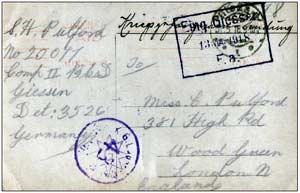 S. H. Pulford
No 20071
Comp II 126 D
Giessen
Det: 3526
Germany
Kriegsgefangenensendung
Giessen
F.a.
To
Miss. C. Pulford
381 High Rd
Wood Green
London N
England